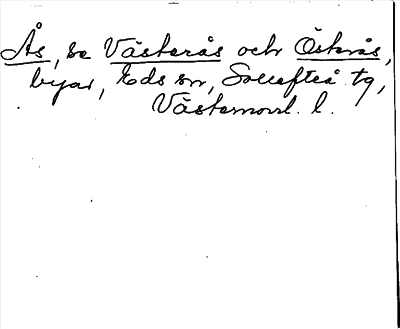 Ås, se Västerås och Österås,
byar, Eds sn, Sollefteå tg,
Västernorrl. l.